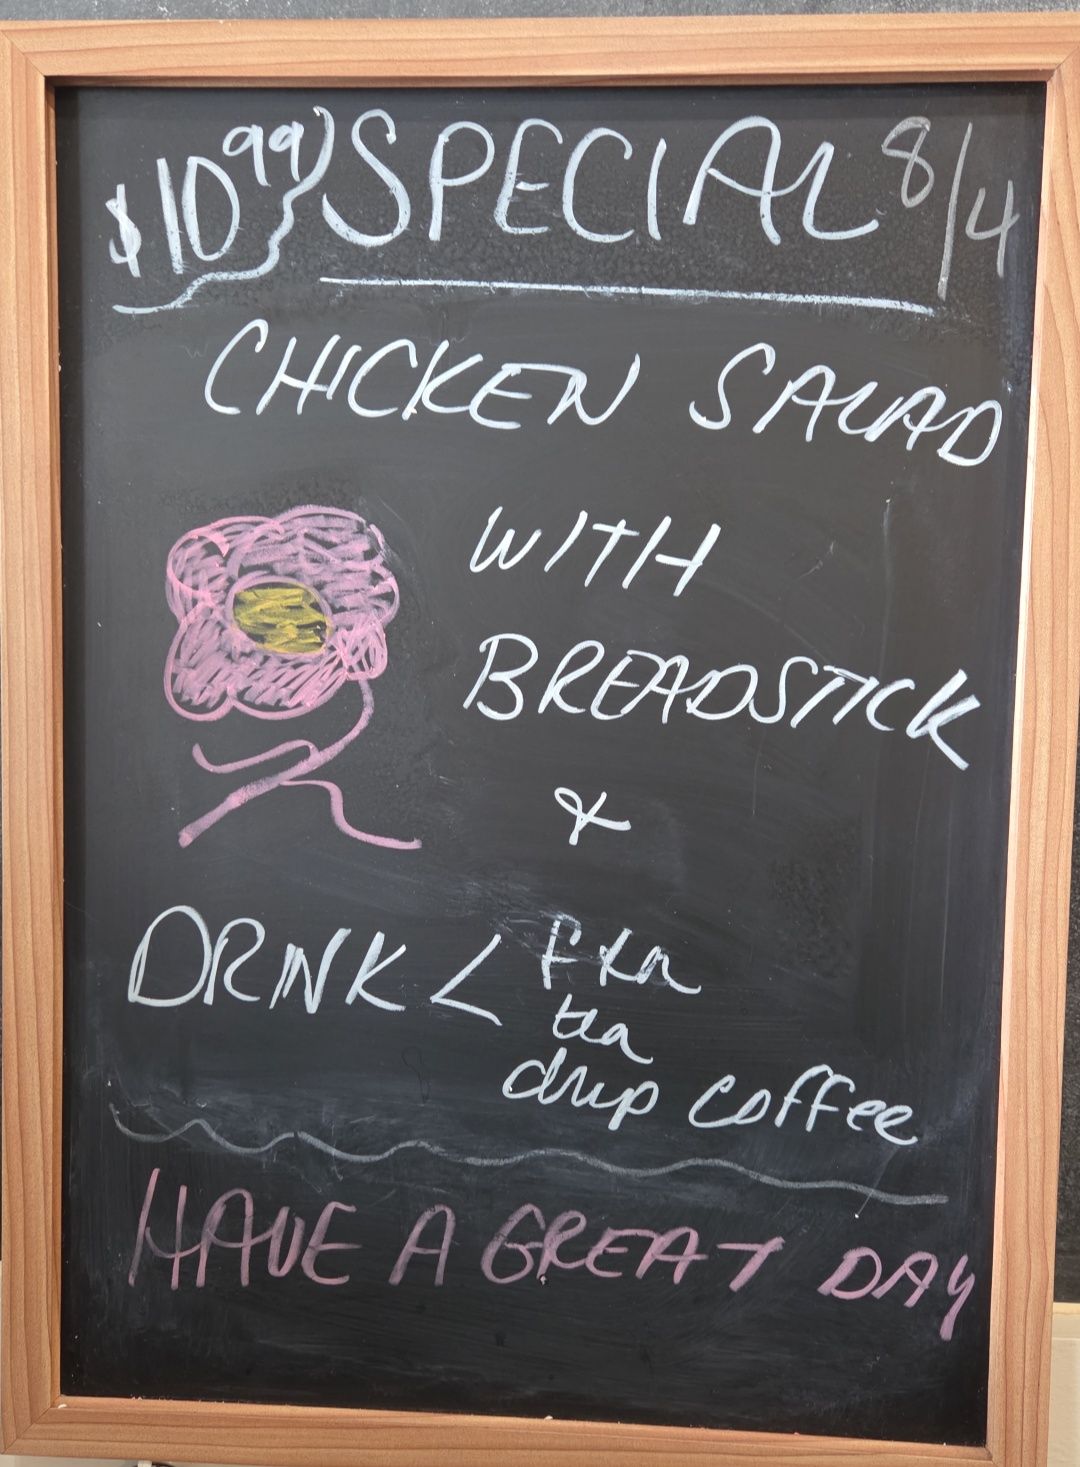 $10.99 SPECIAL 8/4
CHICKEN SALAD
WITH
BREADSTICK
&
DRINK <
tea
drip coffee
HAVE A GREAT DAY